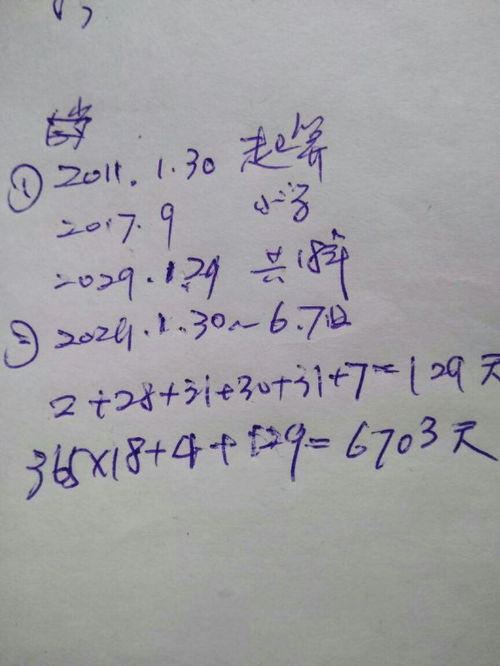 ① 2011.1.30 起算
2017.9 小学
2029.1.29 共18年
② 2029.1.30~6.7日
2+28+31+30+31+7=129天
365×18+4+129=6703天